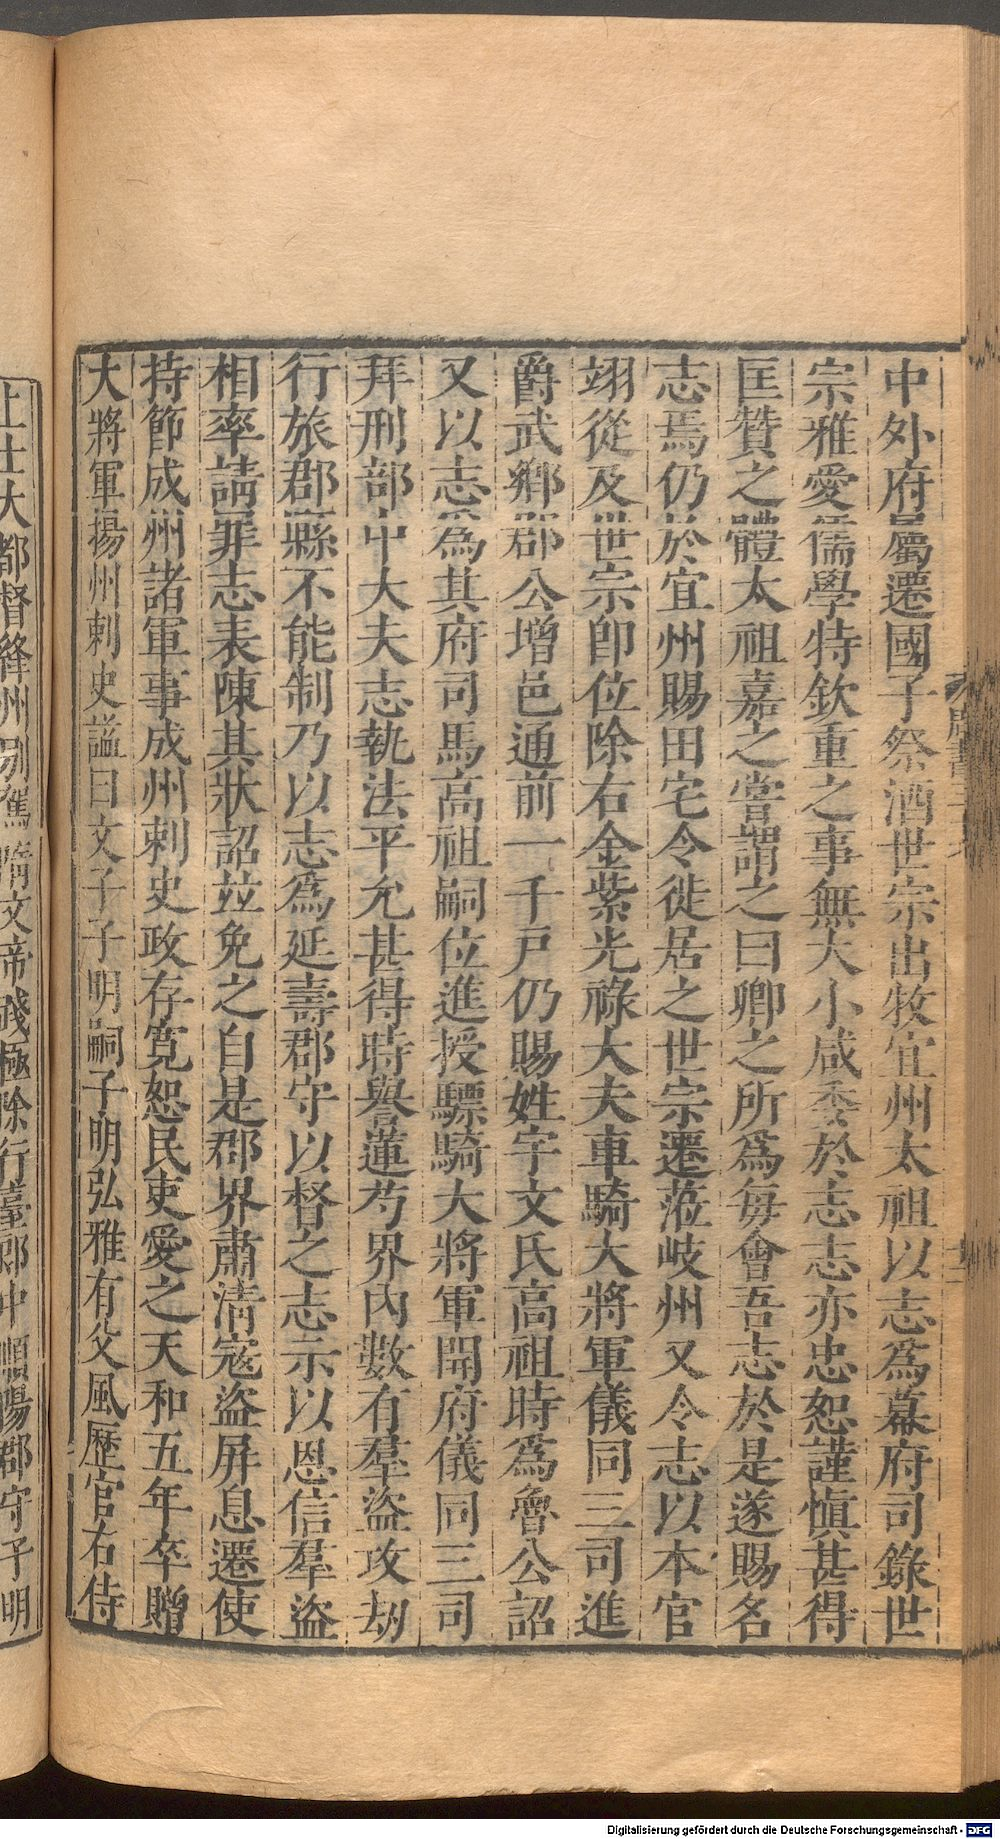 中外府屬遷國子祭酒世宗出牧宜州太祖以志爲幕府司錄世
宗雅愛儒學特欽重之事無大小咸委於志志亦忠恕謹愼甚得
匡贊之體太祖嘉之嘗謂之曰卿之所爲每會吾志於是遂賜名
志焉仍於宜州賜田宅令徙居之世宗遷蒞岐州又令志以本官
翊從及世宗卽位除右金紫光祿大夫車騎大將軍儀同三司進
爵武鄉郡公增邑通前一千戸仍賜姓宇文氏高祖時爲魯公詔
又以志爲其府司馬高祖嗣位進授驃騎大將軍開府儀同三司
拜刑部中大夫志執法平允甚得時譽蓮芍界內數有羣盜攻劫
行旅郡縣不能制乃以志爲延壽郡守以督之志示以恩信羣盜
相率請罪志表陳其狀詔竝免之自是郡界肅清寇盜屛息遷使
持節成州諸軍事成州刺史政存寬恕民吏愛之天和五年卒贈
大將軍揚州刺史謚曰文子子明嗣子明弘雅有父風歷官右侍
上士大都督絳州別駕隋文帝踐極除行臺郎中順陽郡守子明
Digitalisierung gefördert durch die Deutsche Forschungsgemeinschaft - DFG